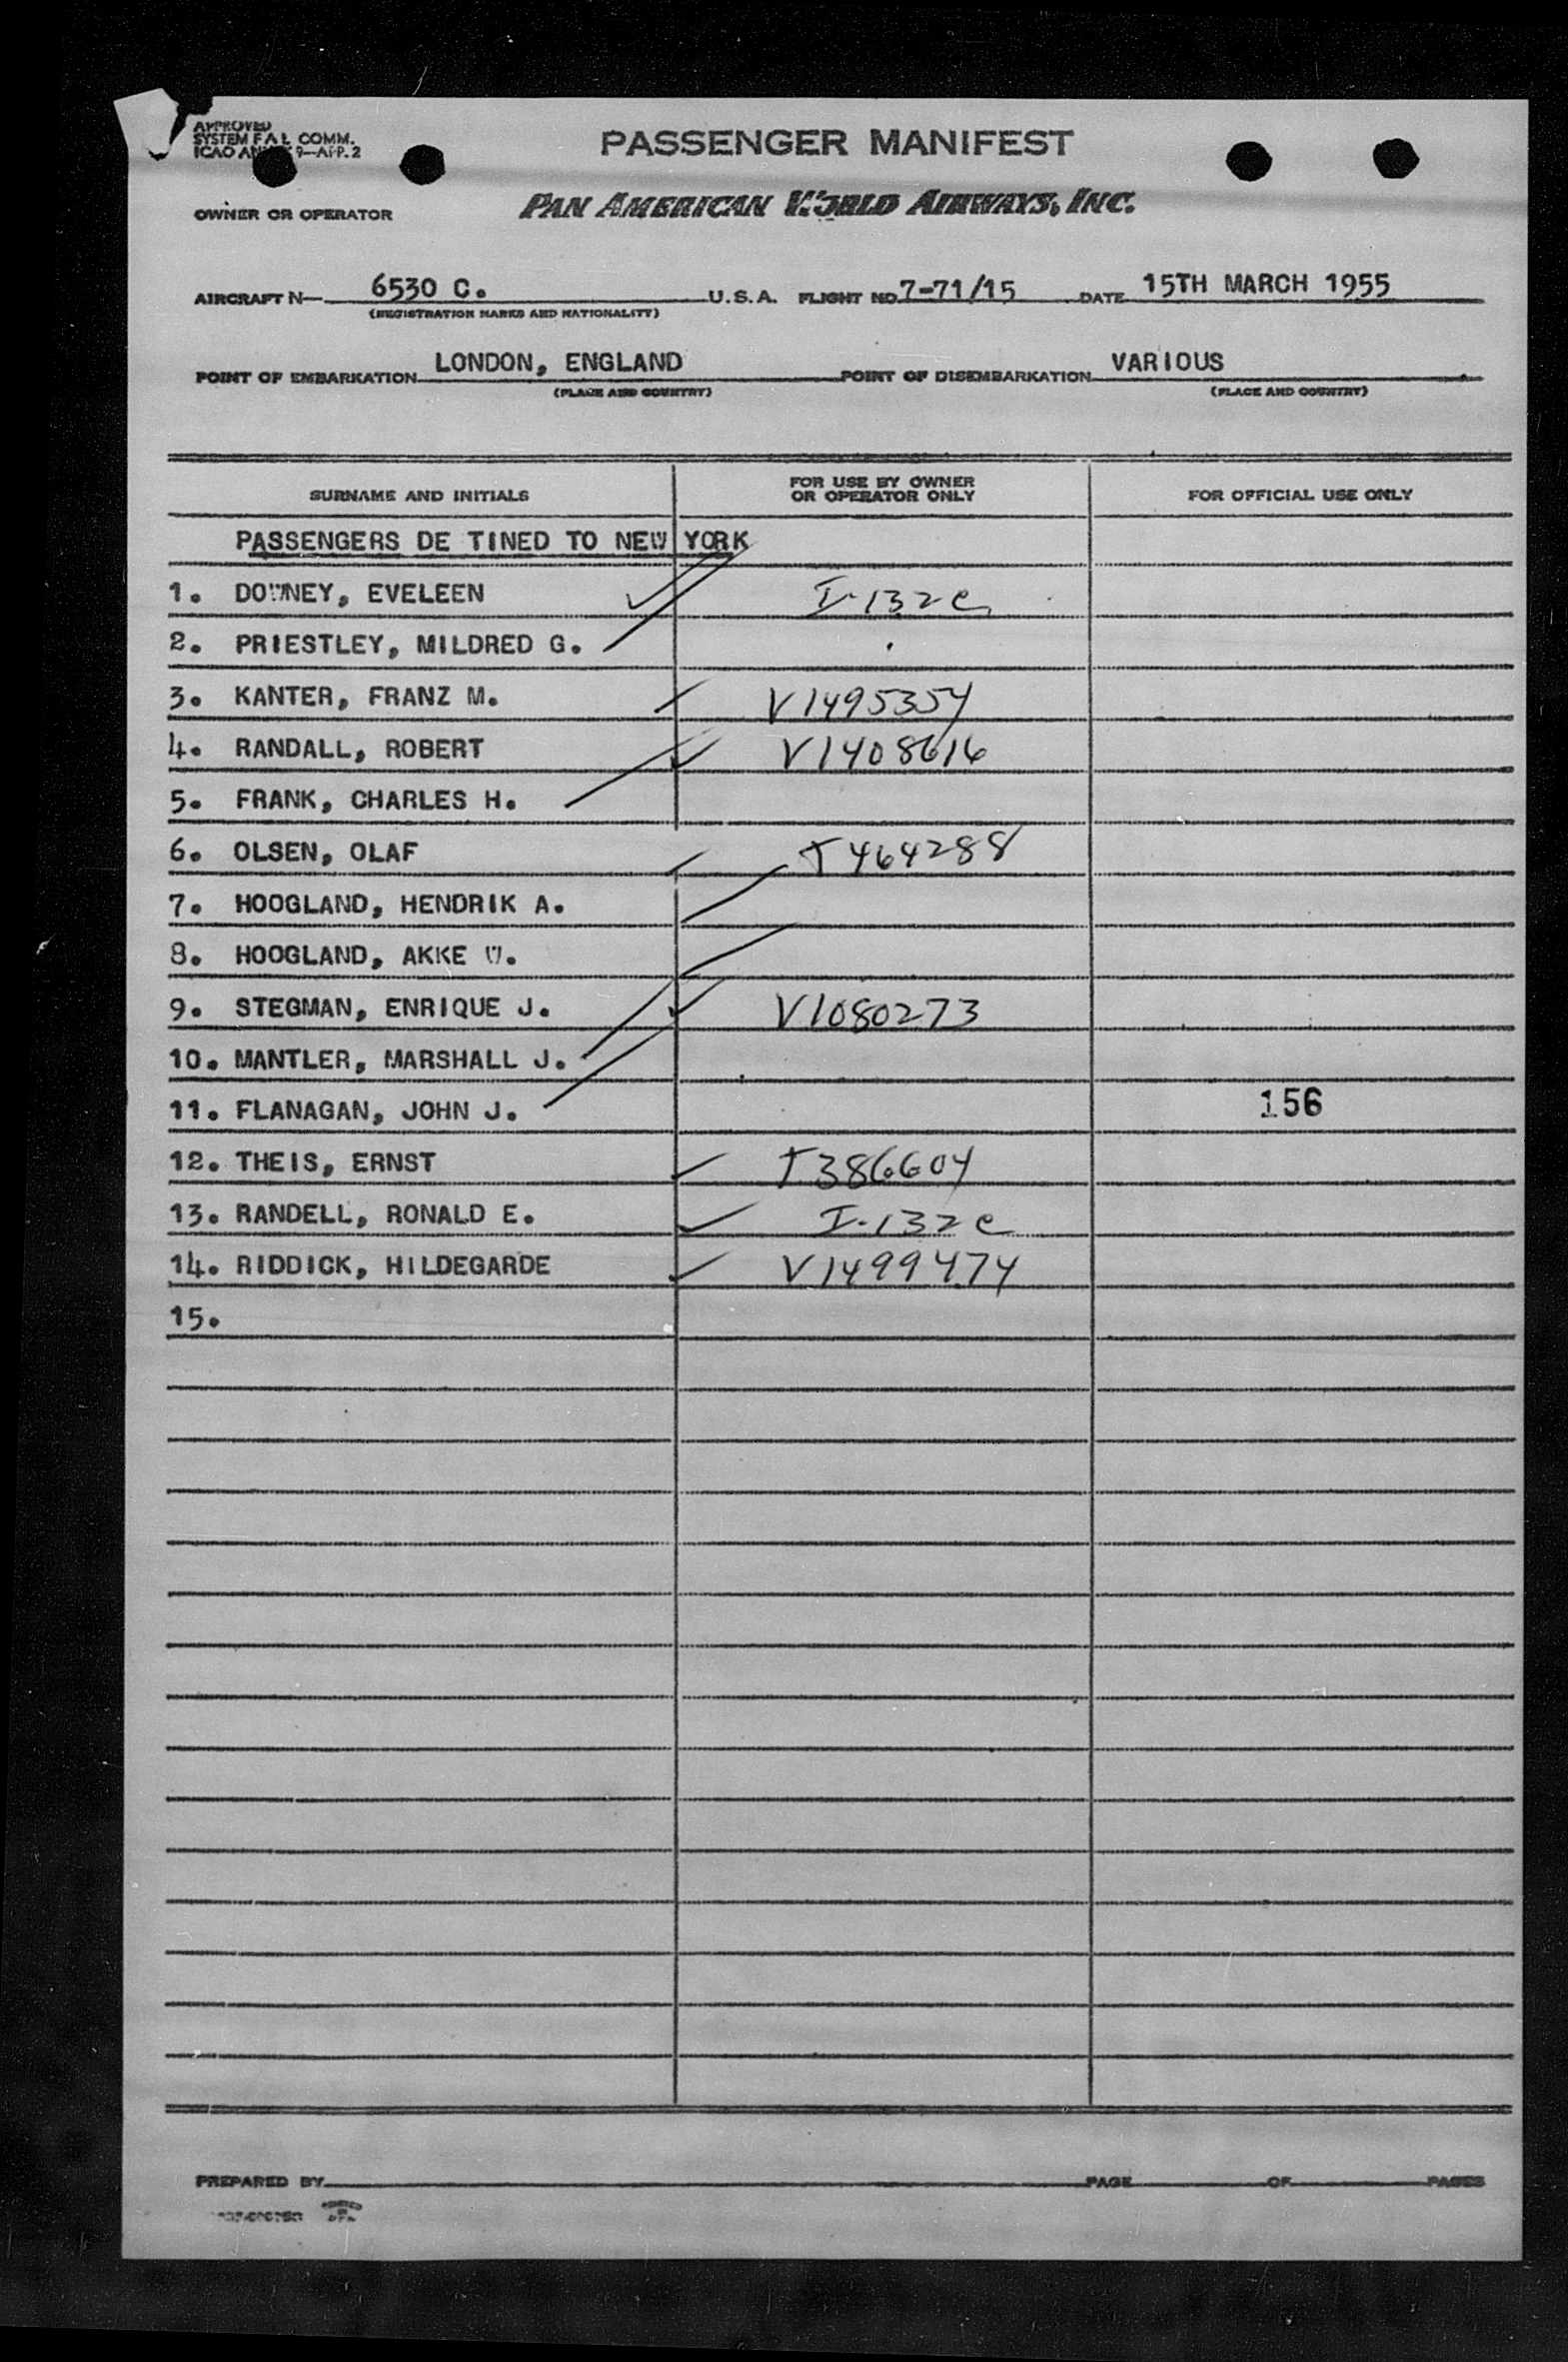 APPROVED
SYSTEM F A L COMM.
ICAO 9-APP. 2
PASSENGER MANIFEST
OWNER OR OPERATOR PAN AMERICAN WORLD AIRWAYS, INC.
AIRCRAFT N— 6530 C. U.S.A. FLIGHT NO 7-71/15 DATE 15TH MARCH 1955
(REGISTRATION MARKS AND NATIONALITY)
POINT OF EMBARKATION LONDON, ENGLAND POINT OF DISEMBARKATION VARIOUS
(PLACE AND COUNTRY) (PLACE AND COUNTRY)
SURNAME AND INITIALS FOR USE BY OWNER OR OPERATOR ONLY FOR OFFICIAL USE ONLY
PASSENGERS DE TINED TO NEW YORK
1. DOWNEY, EVELEEN I-132c
2. PRIESTLEY, MILDRED G.
3. KANTER, FRANZ M. V1495354
4. RANDALL, ROBERT V1408616
5. FRANK, CHARLES H.
6. OLSEN, OLAF T464288
7. HOOGLAND, HENDRIK A.
8. HOOGLAND, AKKE W.
9. STEGMAN, ENRIQUE J. V1080273
10. MANTLER, MARSHALL J.
11. FLANAGAN, JOHN J. 156
12. THEIS, ERNST T386604
13. RANDELL, RONALD E. I-132c
14. RIDDICK, HILDEGARDE V1499474
15.
PREPARED BY PAGE OF PAGES